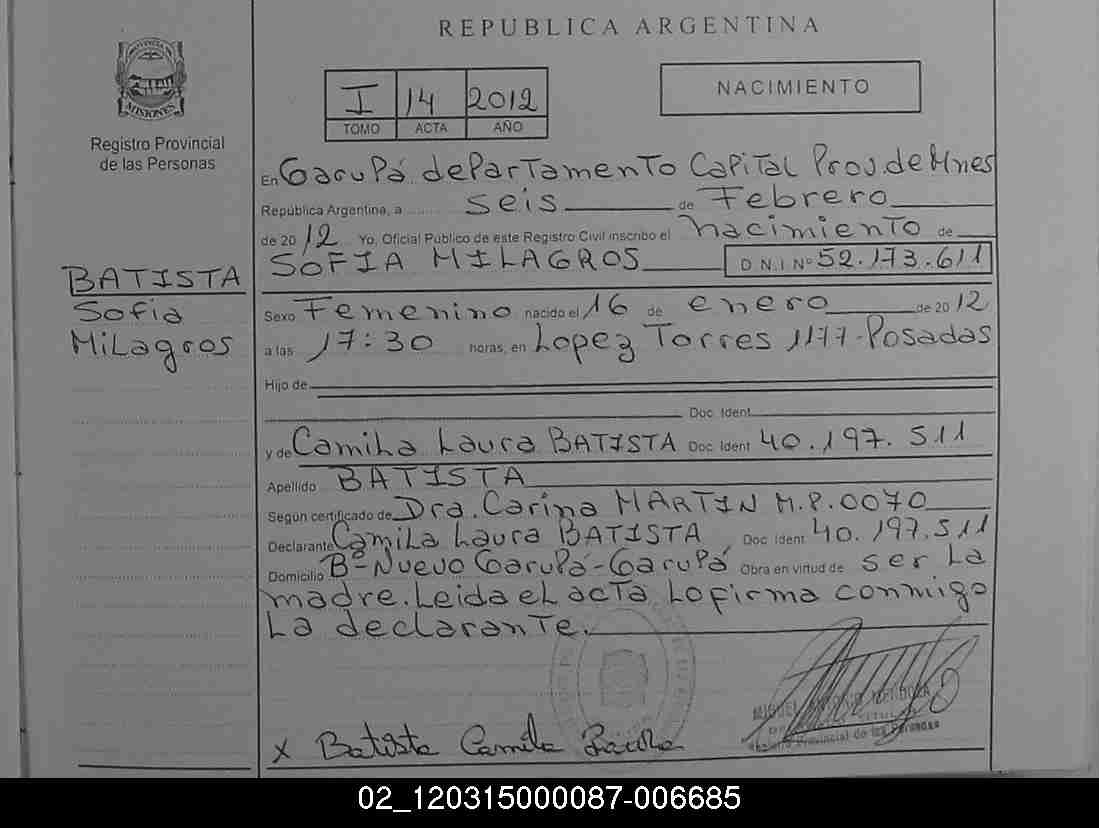 REPUBLICA ARGENTINA
PROVINCIA DE
MISIONES
Registro Provincial
de las Personas
I 14 2012
TOMO ACTA AÑO
NACIMIENTO
En Garupá departamento Capital Prov. de Mnes
República Argentina, a seis de Febrero
de 2012 Yo, Oficial Público de este Registro Civil inscribo el nacimiento de
SOFIA MILAGROS D.N.I Nº 52.173.611
BATISTA
Sofia
Milagros
Sexo Femenino nacido el 16 de enero de 2012
a las 17:30 horas, en Lopez Torres 1177-Posadas
Hijo de
Doc. Ident.
y de Camila Laura BATISTA Doc. Ident 40.197.511
Apellido BATISTA
Según certificado de Dra. Carina MARTIN M.P.0070
Declarante Camila Laura BATISTA Doc Ident 40.197.511
Domicilio Bº Nuevo Garupá-Garupá Obra en virtud de ser la
madre. Leida el acta lo firma conmigo
la declarante.
MIGUEL MENDOZA
Registro Provincial de las Personas
x Batista Camila Laura
02_120315000087-006685